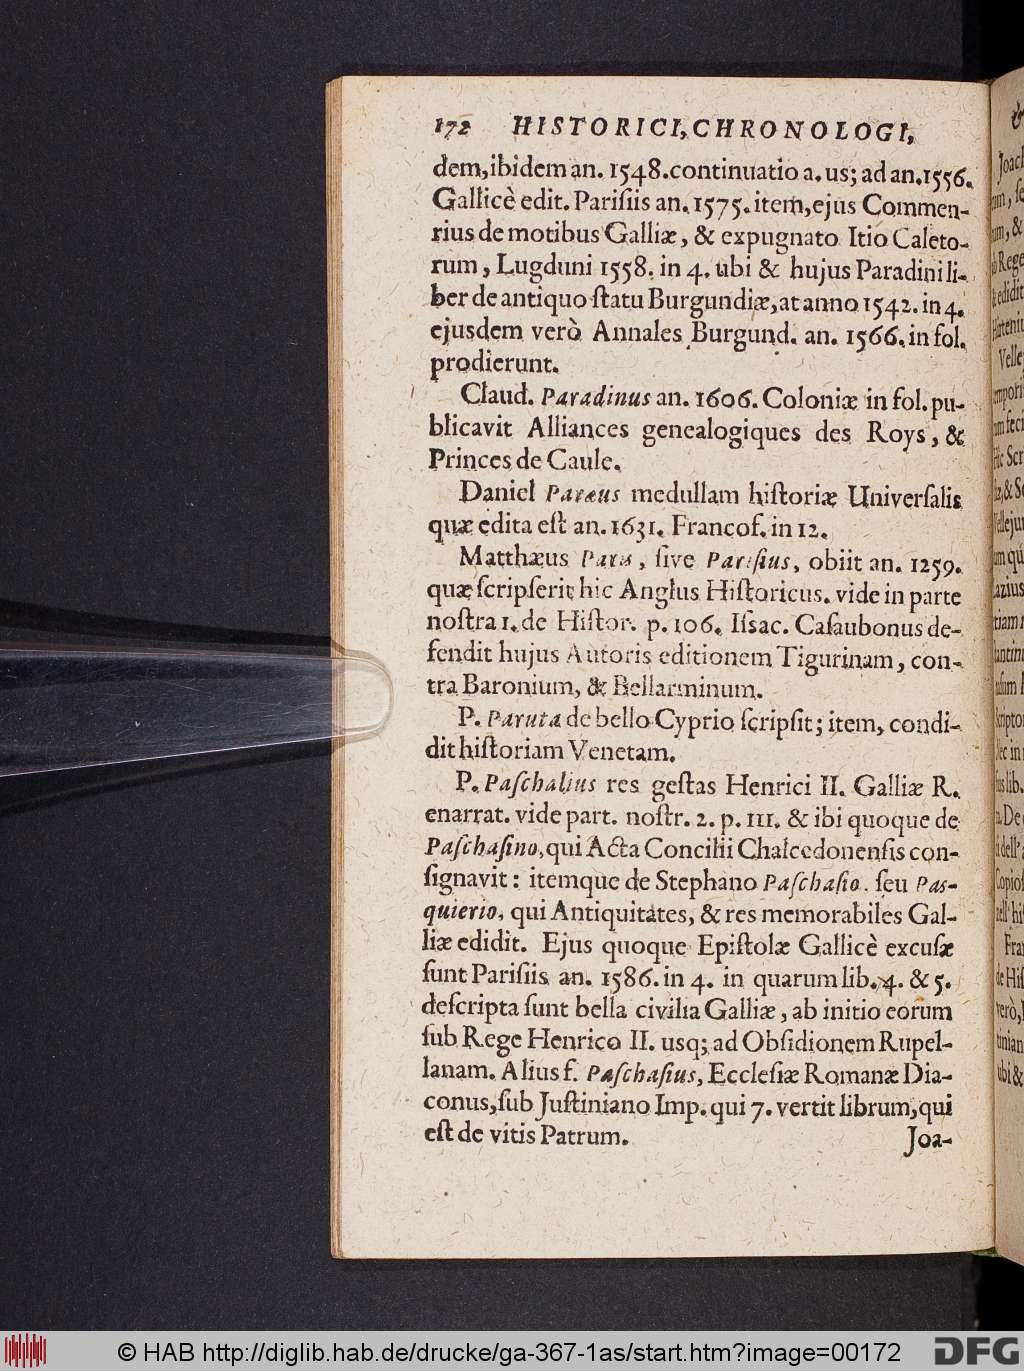 172 HISTORICI, CHRONOLOGI,
dem, ibidem an. 1548. continuatio a. us; ad an. 1556.
Gallicè edit. Pariſiis an. 1575. item, ejus Commen-
rius de motibus Galliæ, & expugnato Itio Caleto-
rum, Lugduni 1558. in 4. ubi & hujus Paradini li-
ber de antiquo ſtatu Burgundiæ, at anno 1542. in 4.
ejusdem verò Annales Burgund. an. 1566. in fol.
prodierunt.
Claud. Paradinus an. 1606. Coloniæ in fol. pu-
blicavit Alliances genealogiques des Roys, &
Princes de Caule.
Daniel Paræus medullam hiſtoriæ Univerſalis
quæ edita eſt an. 1631. Francof. in 12.
Matthæus Paris, ſive Pariſius, obiit an. 1259.
quæ ſcripſerit hic Anglus Hiſtoricus. vide in parte
noſtra 1. de Hiſtor. p. 106. Iſsac. Caſaubonus de-
fendit hujus Autoris editionem Tigurinam, con-
tra Baronium, & Bellarminum.
P. Paruta de bello Cyprio ſcripſit; item, condi-
dit hiſtoriam Venetam.
P. Paſchalius res geſtas Henrici II. Galliæ R.
enarrat. vide part. noſtr. 2. p. 111. & ibi quoque de
Paſchaſino, qui Acta Concilii Chalcedonenſis con-
ſignavit: itemque de Stephano Paſchaſio. ſeu Pas-
quierio, qui Antiquitates, & res memorabiles Gal-
liæ edidit. Ejus quoque Epiſtolæ Gallicè excuſæ
ſunt Pariſiis an. 1586. in 4. in quarum lib. 4. & 5.
deſcripta ſunt bella civilia Galliæ, ab initio eorum
ſub Rege Henrico II. usq; ad Obſidionem Rupel-
lanam. Alius f. Paſchaſius, Eccleſiæ Romanæ Dia-
conus, ſub Juſtiniano Imp. qui 7. vertit librum, qui
eſt de vitis Patrum.
Joa-
© HAB http://diglib.hab.de/drucke/ga-367-1as/start.htm?image=00172
DFG